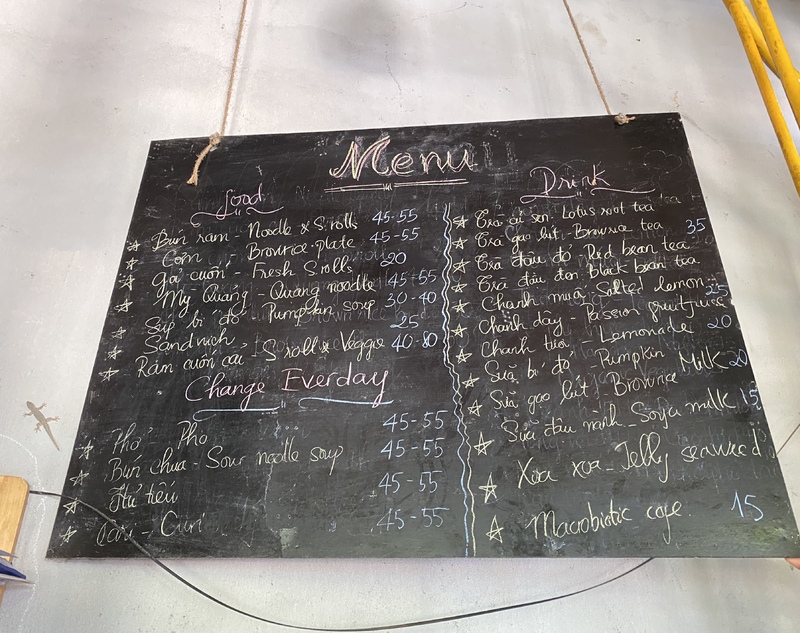 Menu
Food
Bún ram - Noodle & S.rolls 45-55
Cơm - Brownrice-plate 45-55
Gỏi cuốn - Fresh S rolls 20
Mỳ Quảng - Quảng noodle 45-55
Súp bí đỏ Pumpkin soup 30-40
Sandwich 25
Ram cuốn cải S roll & Veggie 40-80
Change Everday
Phở - Pho 45-55
Bún chua - Sour noodle soup 45-55
Hủ tiếu 45-55
Cari - Curi 45-55
Drink
Trà củ sen Lotus root tea
Trà gạo lứt - Brownrice tea 35
Trà đậu đỏ Red bean tea
Trà đậu đen black bean tea
Chanh muối Salted lemon 25
Chanh dây - Passion fruit juice
Chanh tươi - Lemonade 20
Sữa bí đỏ - Pumpkin Milk 20
Sữa gạo lứt - Brownrice
Sữa đậu nành - Soya milk 15
Xoa xoa - Jelly seaweed
Macrobiotic cafe. 15